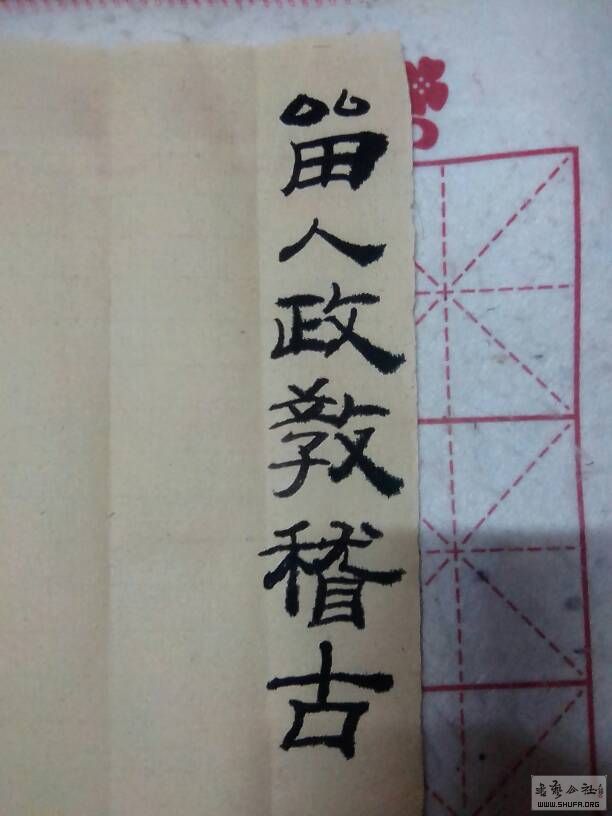 留人政教稽古
書藝公社
WWW.SHUFA.ORG